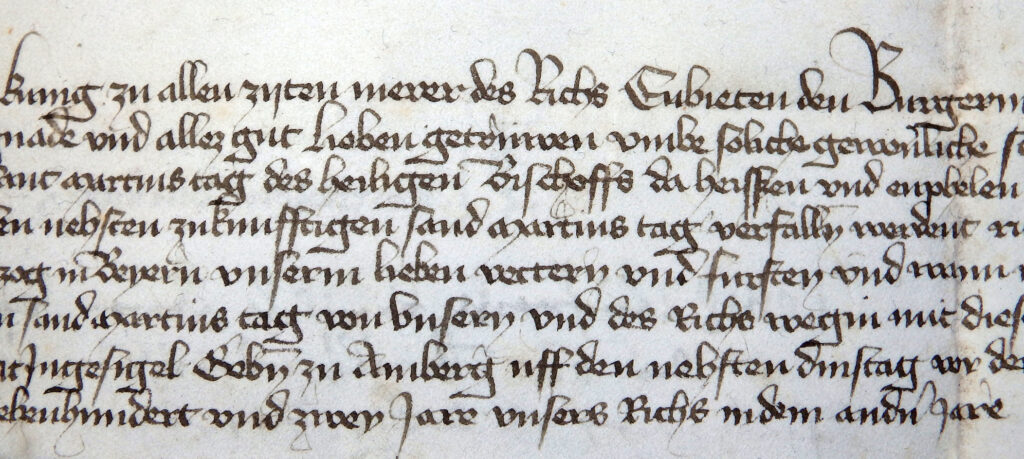 kunig zu allen zijten merer des Richs Enbieten den Burgerm
gnade vnd allez gut Lieben getruwen vmbe soliche gewonliche
sant Martins tag des heiligen Bischoffs da heissen vnd enphelen
nehsten zukunfftigen sand Martins tag verfallen werdent
zog in Beyern vnserm lieben vettern vnd fursten vnd wann
sand Martins tag von vnsern vnd des Richs wegin mit dies
Ingesigel Gebn zu Amberg uff den nehsten dinstag vor
hundert vnd zwey Jare vnsers Richs indem andn Jare